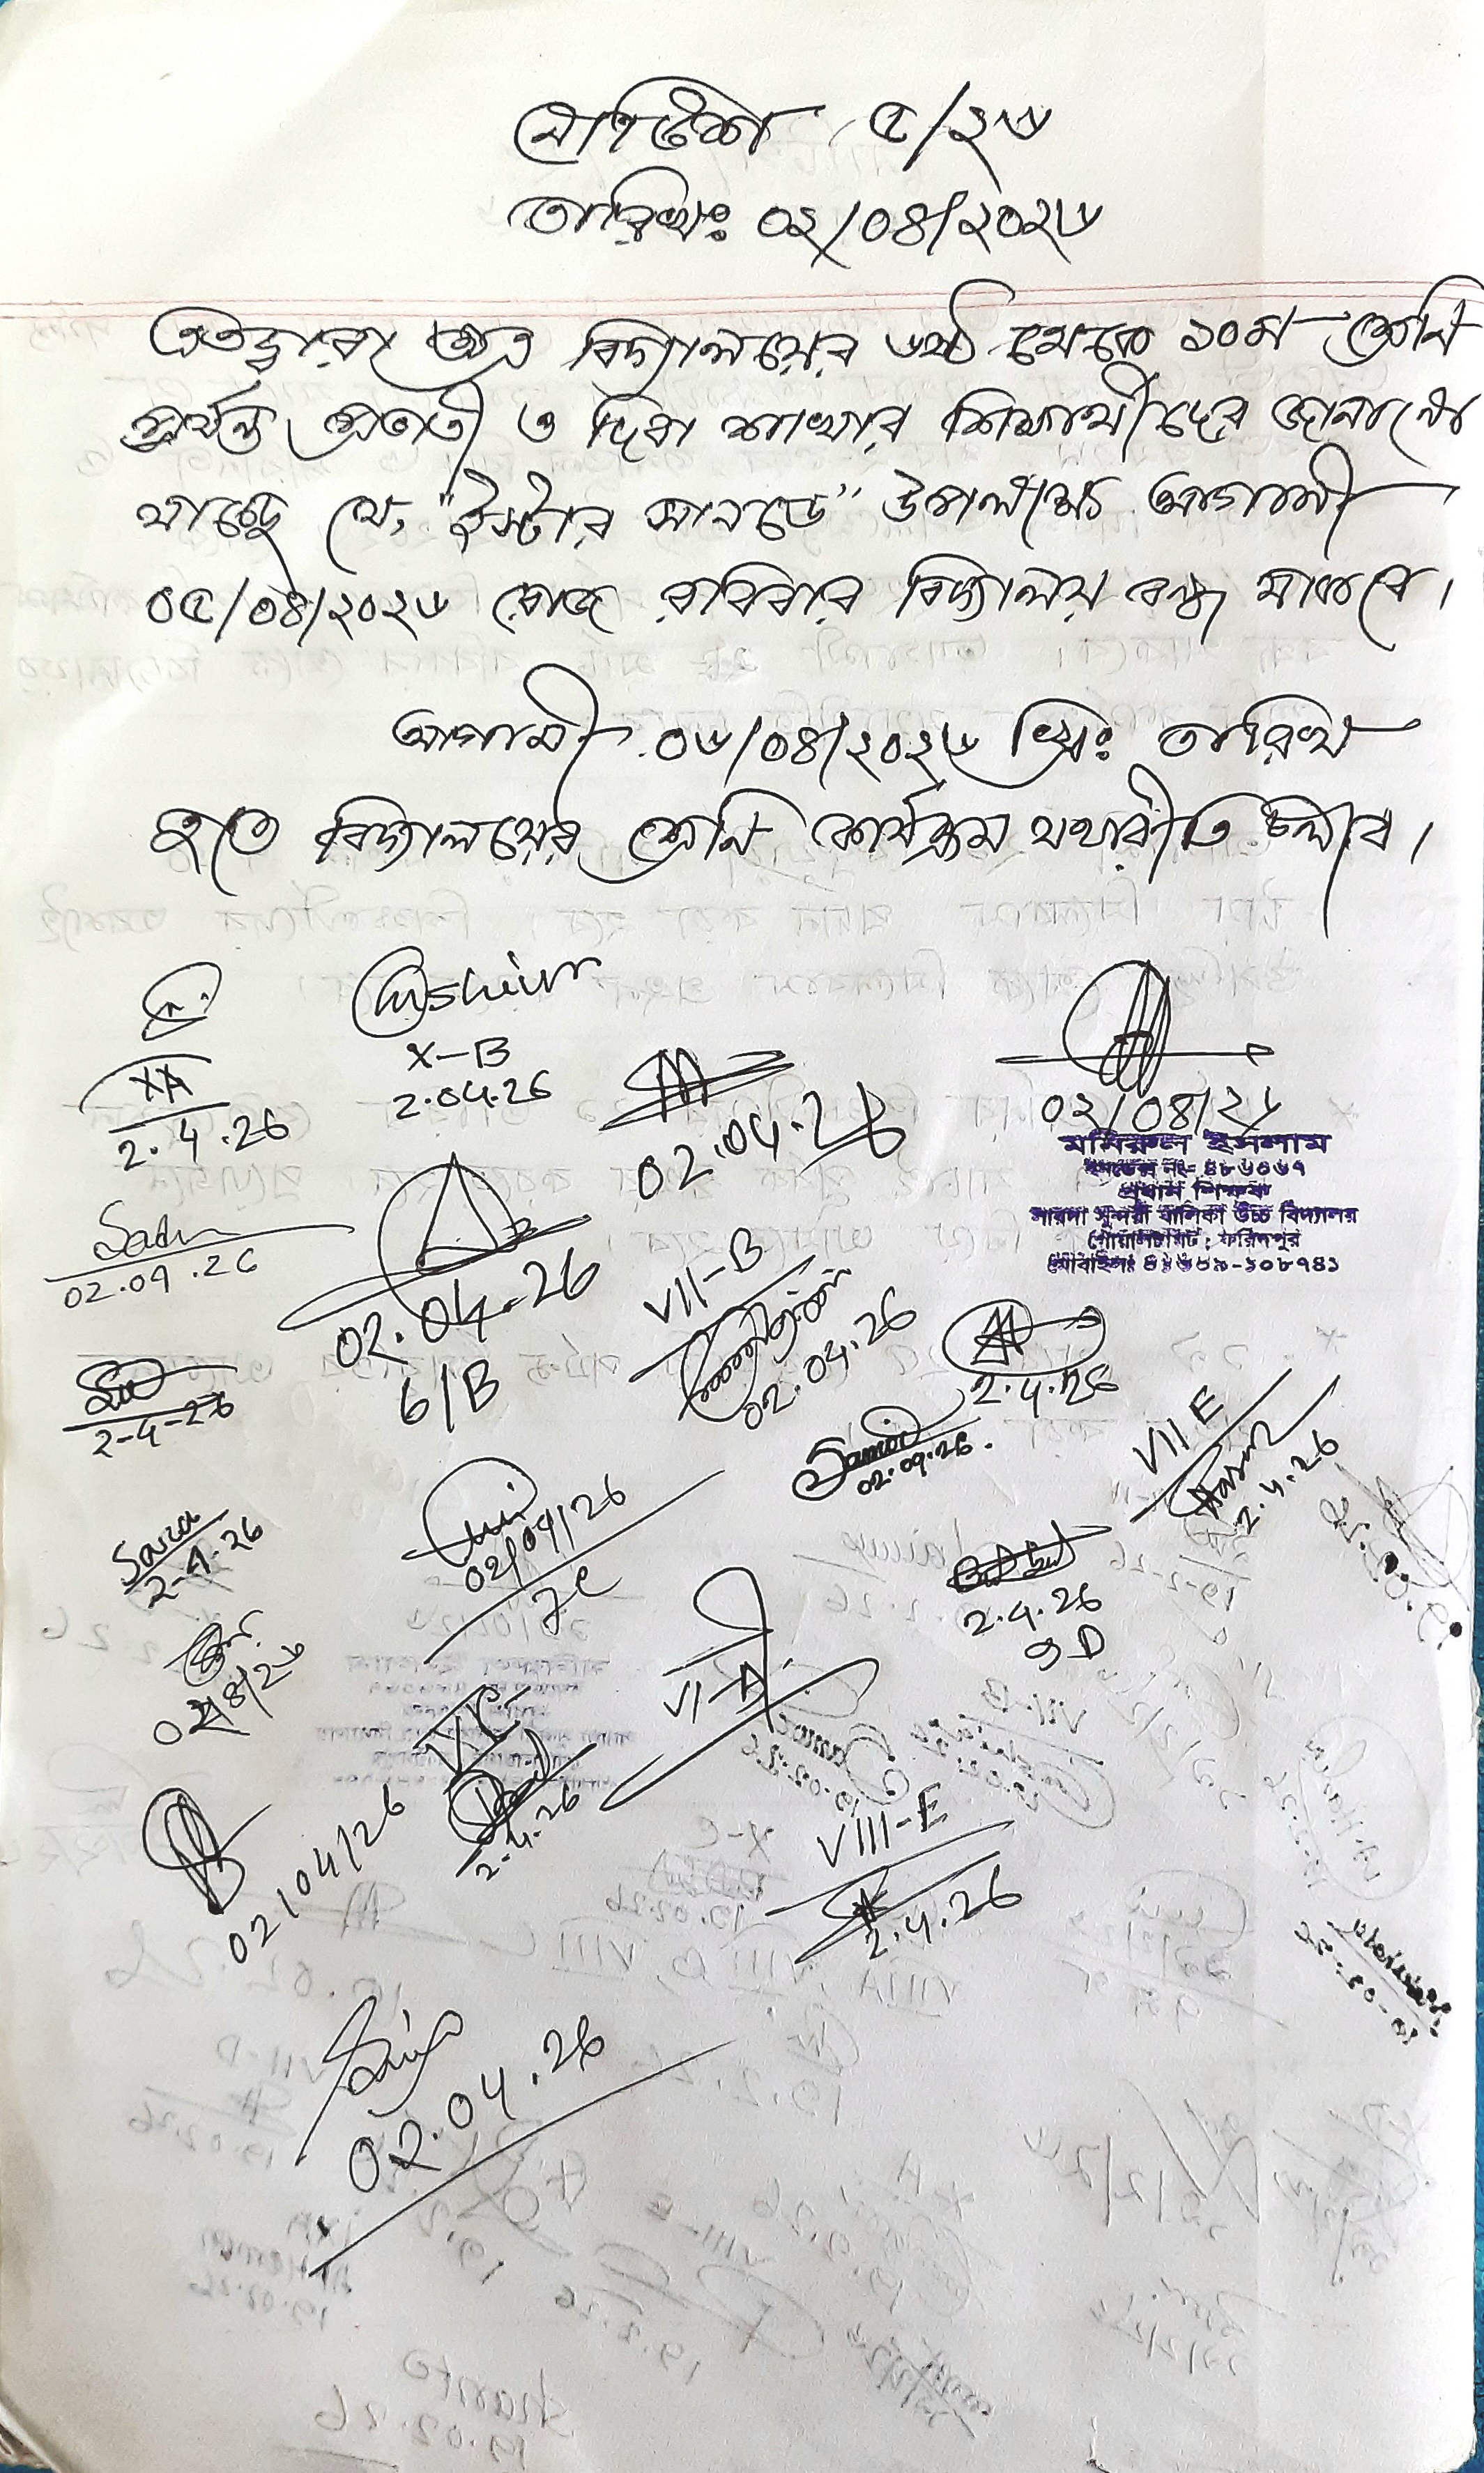 নোটিশ ৫/২৬
তারিখঃ ০২/০৪/২০২৬
এতদ্বারা অত্র বিদ্যালয়ের ৬ষ্ঠ থেকে ১০ম শ্রেনি
পর্যন্ত প্রভাতী ও দিবা শাখার শিক্ষার্থীদের জানানো
যাচ্ছে যে, "ইস্টার সানডে" উপলক্ষ্যে আগামী
০৫/০৪/২০২৬ রোজ রবিবার বিদ্যালয় বন্ধ থাকবে।
আগামী ০৬/০৪/২০২৬ খ্রিঃ তারিখ
হতে বিদ্যালয়ের শ্রেনি কার্যক্রম যথারীতি চলবে।
XA
2.4.26
X-B
2.04.26
02.04.26
০২/০৪/২৬
মনিরুল ইসলাম
প্রধান শিক্ষক
সারদা সুন্দরী বালিকা উচ্চ বিদ্যালয়
গোয়ালচামট, ফরিদপুর
02.04.26
02.04.26
6/B
VII-B
02.04.26
2.4.26
2-4-26
02.04.26
VII E
2.4.26
2-4-26
02/04/26
7C
2.4.26
9D
VI-A
02/04/26
2.4.26
VIII-E
2.4.26
02.04.26